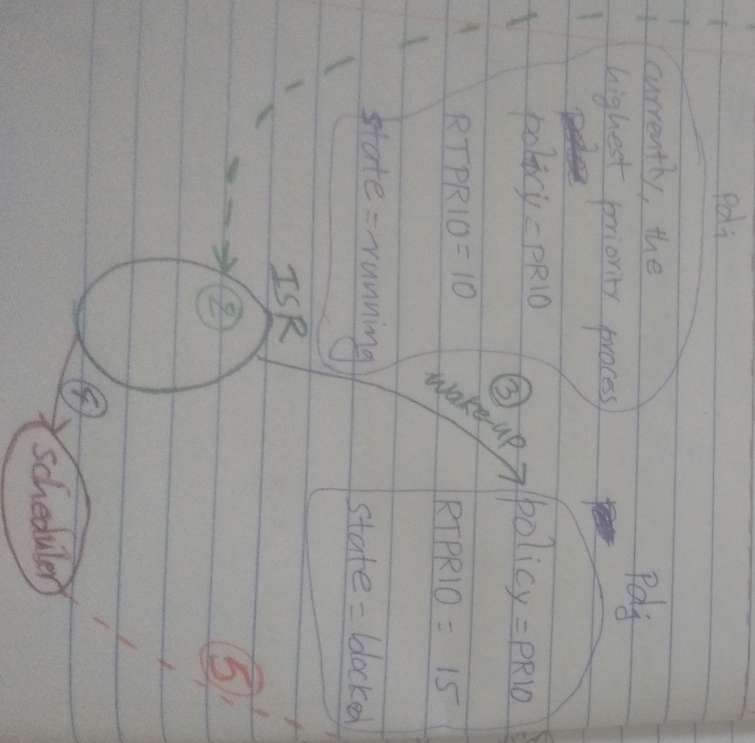 Pdi
currently, the
highest priority process
policy = PRIO
RTPRIO = 10
state = running
ISR
②
③
wakeup
Pdj
policy = PRIO
RTPRIO = 15
state = blocked
④
scheduler
⑤